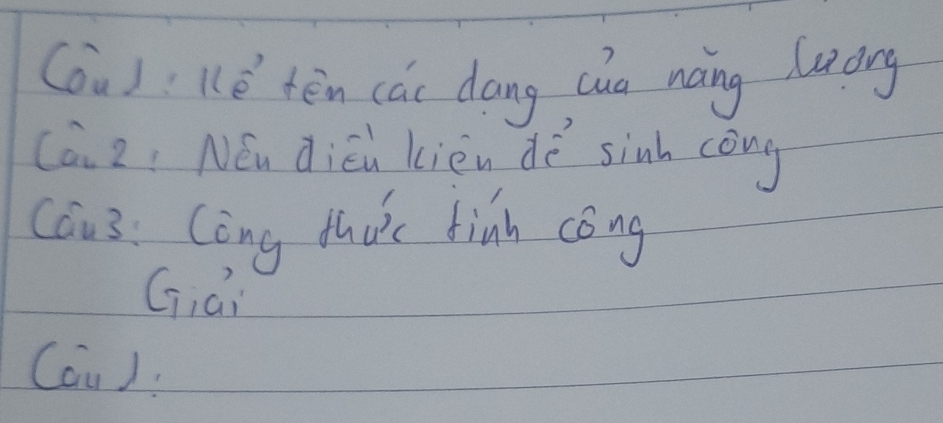 Câu 1: Kể tên các dạng của năng lượng
Câu 2: Nêu điều kiện để sinh công
Câu 3: Công thức tính công
Giải
Câu 1: